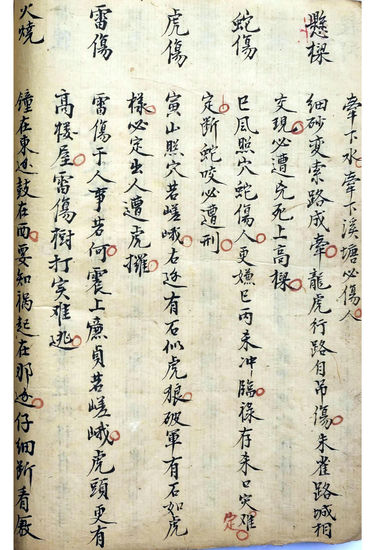 牽下水牽下溪塘必傷人
懸樑
細砂变索路成牽龍虎行路自吊傷朱雀路城相
交現必遭兇死上高樑
蛇傷
巳風照穴蛇傷人更嫌巳丙来冲臨祿存来口实难
定
定断蛇咬必遭刑
虎傷
寅山照穴若嵯峨右边有石似虎狼破軍有石如虎
樣必定出人遭虎攞
雷傷
雷傷于人事若何震上廉貞若嵯峨虎頭更有
高樓屋雷傷樹打实难逃
火燒
鐘在東边鼓在西要知禍起在那边仔細断看厫